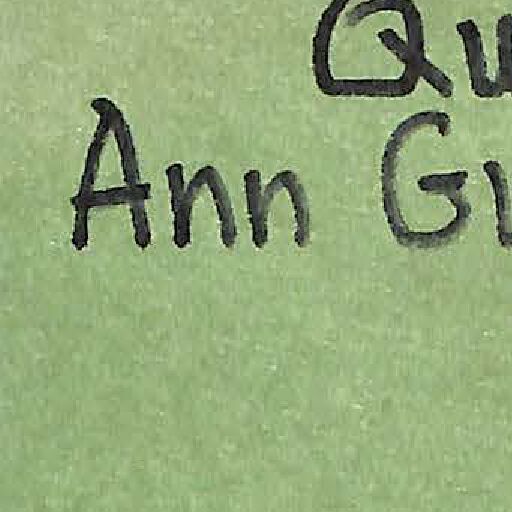 Qu
Ann Gu